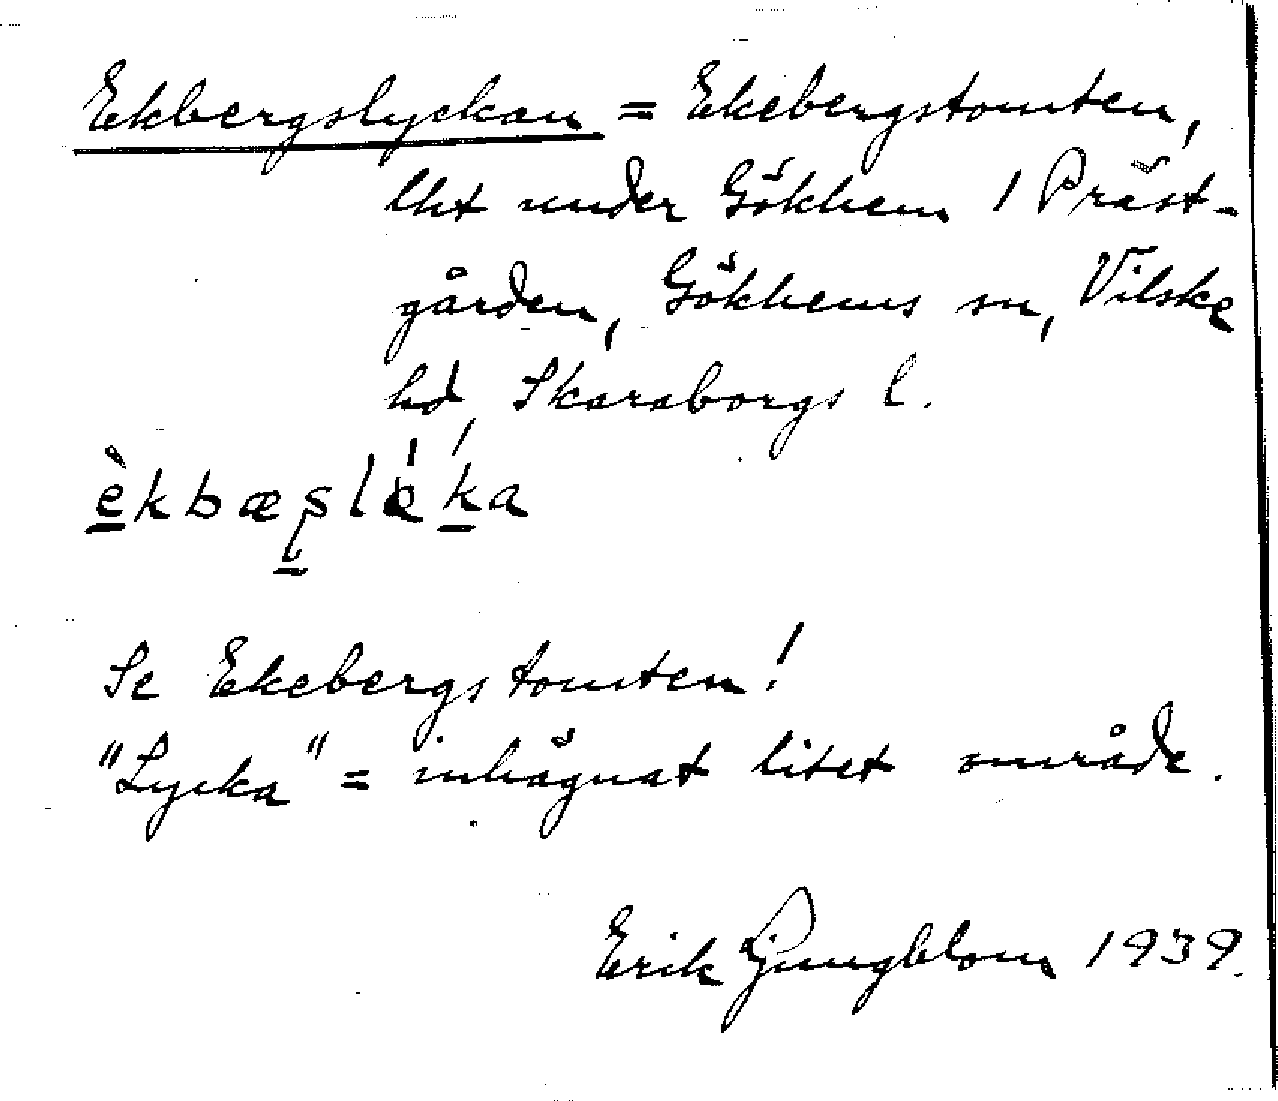 Ekbergslyckan = Ekebergstomten,
lht under Gökhem 1 Präst-
gården, Gökhems sn, Vilske
hd, Skaraborgs l.
Se Ekebergstomten!
"Lycka" = inhägnat litet område.
Erik Ljungblom 1939.